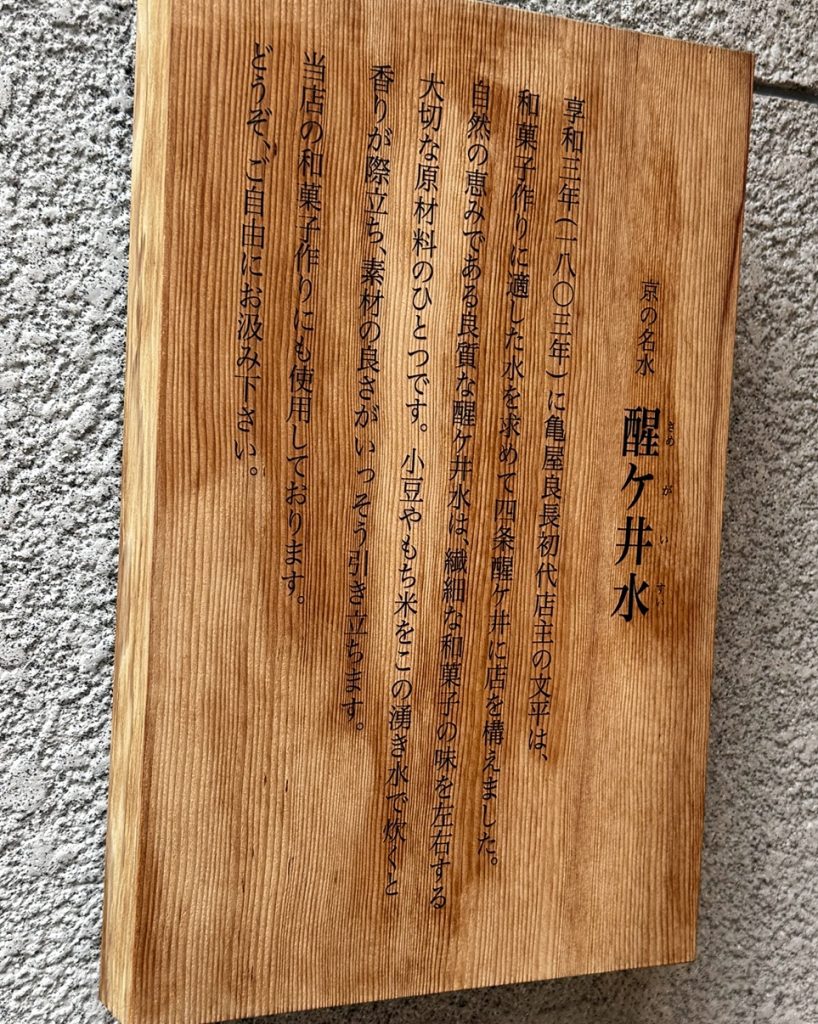 京の名水 醒ケ井水
さめ が い すい
享和三年(一八〇三年)に亀屋良長初代店主の文平は、
和菓子作りに適した水を求めて四条醒ケ井に店を構えました。
自然の恵みである良質な醒ケ井水は、繊細な和菓子の味を左右する
大切な原材料のひとつです。小豆やもち米をこの湧き水で炊くと
香りが際立ち、素材の良さがいっそう引き立ちます。
当店の和菓子作りにも使用しております。
どうぞ、ご自由にお汲み下さい。